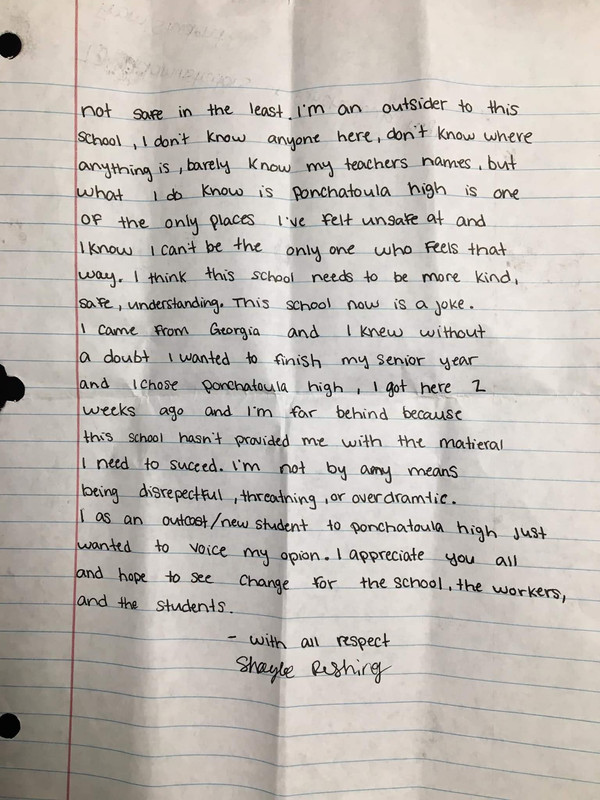 not safe in the least. I'm an outsider to this
school, I don't know anyone here, don't know where
anything is, barely know my teachers names, but
what I do know is Ponchatoula high is one
of the only places I've felt unsafe at and
I know I can't be the only one who feels that
way. I think this school needs to be more kind,
safe, understanding. This school now is a joke.
I came from Georgia and I knew without
a doubt I wanted to finish my senior year
and I chose ponchatoula high, I got here 2
weeks ago and I'm far behind because
this school hasn't provided me with the matieral
I need to succed. I'm not by any means
being disrepectful, threatning, or overdramtic.
I as an outcast/new student to ponchatoula high just
wanted to voice my opion. I appreciate you all
and hope to see change for the school, the workers,
and the students.
- with all respect